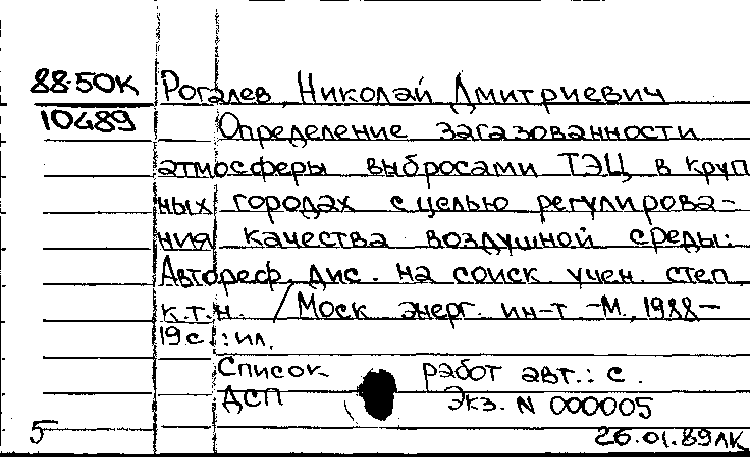 88-50К Рогалев, Николай Дмитриевич
10489 Определение загазованности
атмосферы выбросами ТЭЦ в круп
ных городах с целью регулирова-
ния качества воздушной среды:
Автореф. дис. на соиск учен. степ.
к.т.н. / Моск энерг. ин-т -М., 1988-
19с.: ил.
Список работ авт.: с.
ДСП Экз. N 000005
5 26.01.89ЛК